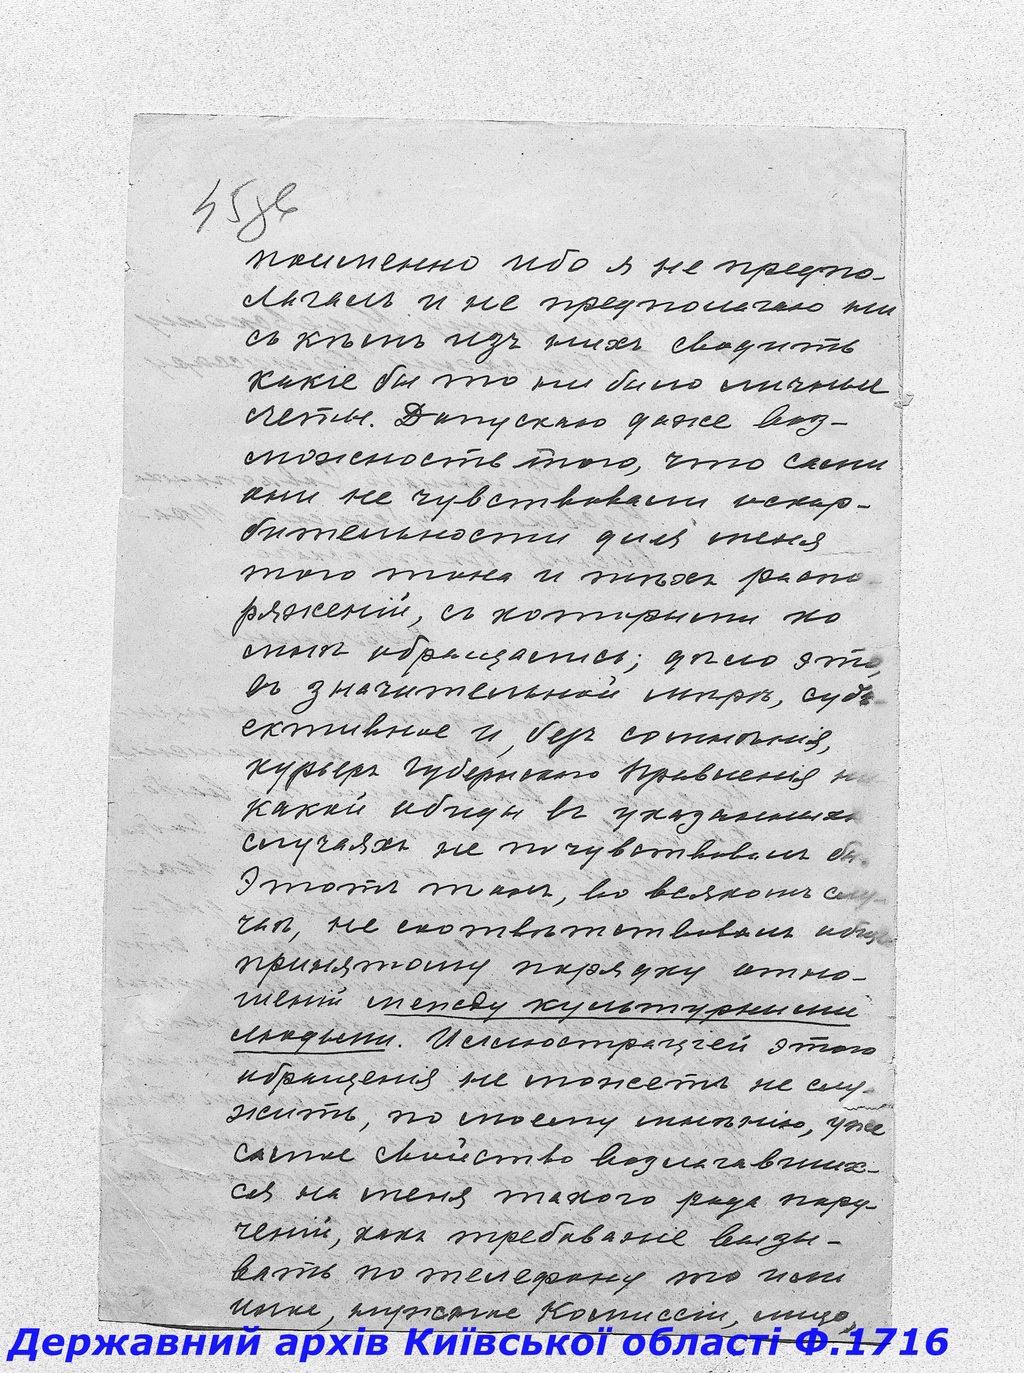 45 об
поименно ибо я не предпо-
лагалъ и не предполагаю ни
съ кѣмъ изъ нихъ сводить
какіе бы то ни было личные
счеты. Допускаю даже воз-
можность того, что сами
они не чувствовали оскор-
бительности для меня
того тона и тѣхъ распо-
ряженій, съ которыми ко
мнѣ обращались; дѣло это,
въ значительной мѣрѣ, субъ-
ективное и, безъ сомнѣнія,
курьеръ Губернскаго Правленія ни
какой обиды въ указанныхъ
случаяхъ не почувствовалъ бы.
Этотъ тонъ, во всякомъ слу-
чаѣ, не соотвѣтствовалъ обще
принятому порядку отно-
шеній между культурными
людьми. Иллюстраціей этого
обращенія не можетъ не слу-
жить, по моему мнѣнію, уже
самое свойство возлагавших-
ся на меня такого рода пору-
ченій, какъ требованіе вызы-
вать по телефону то или
иное, нужное Комиссіи, лицо,
Державний архів Київської області Ф.1716